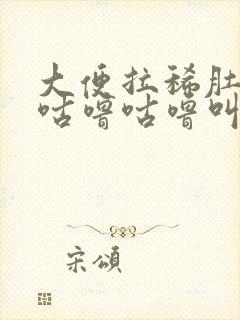 大便拉稀肚
咕噜咕噜叫
宋頌